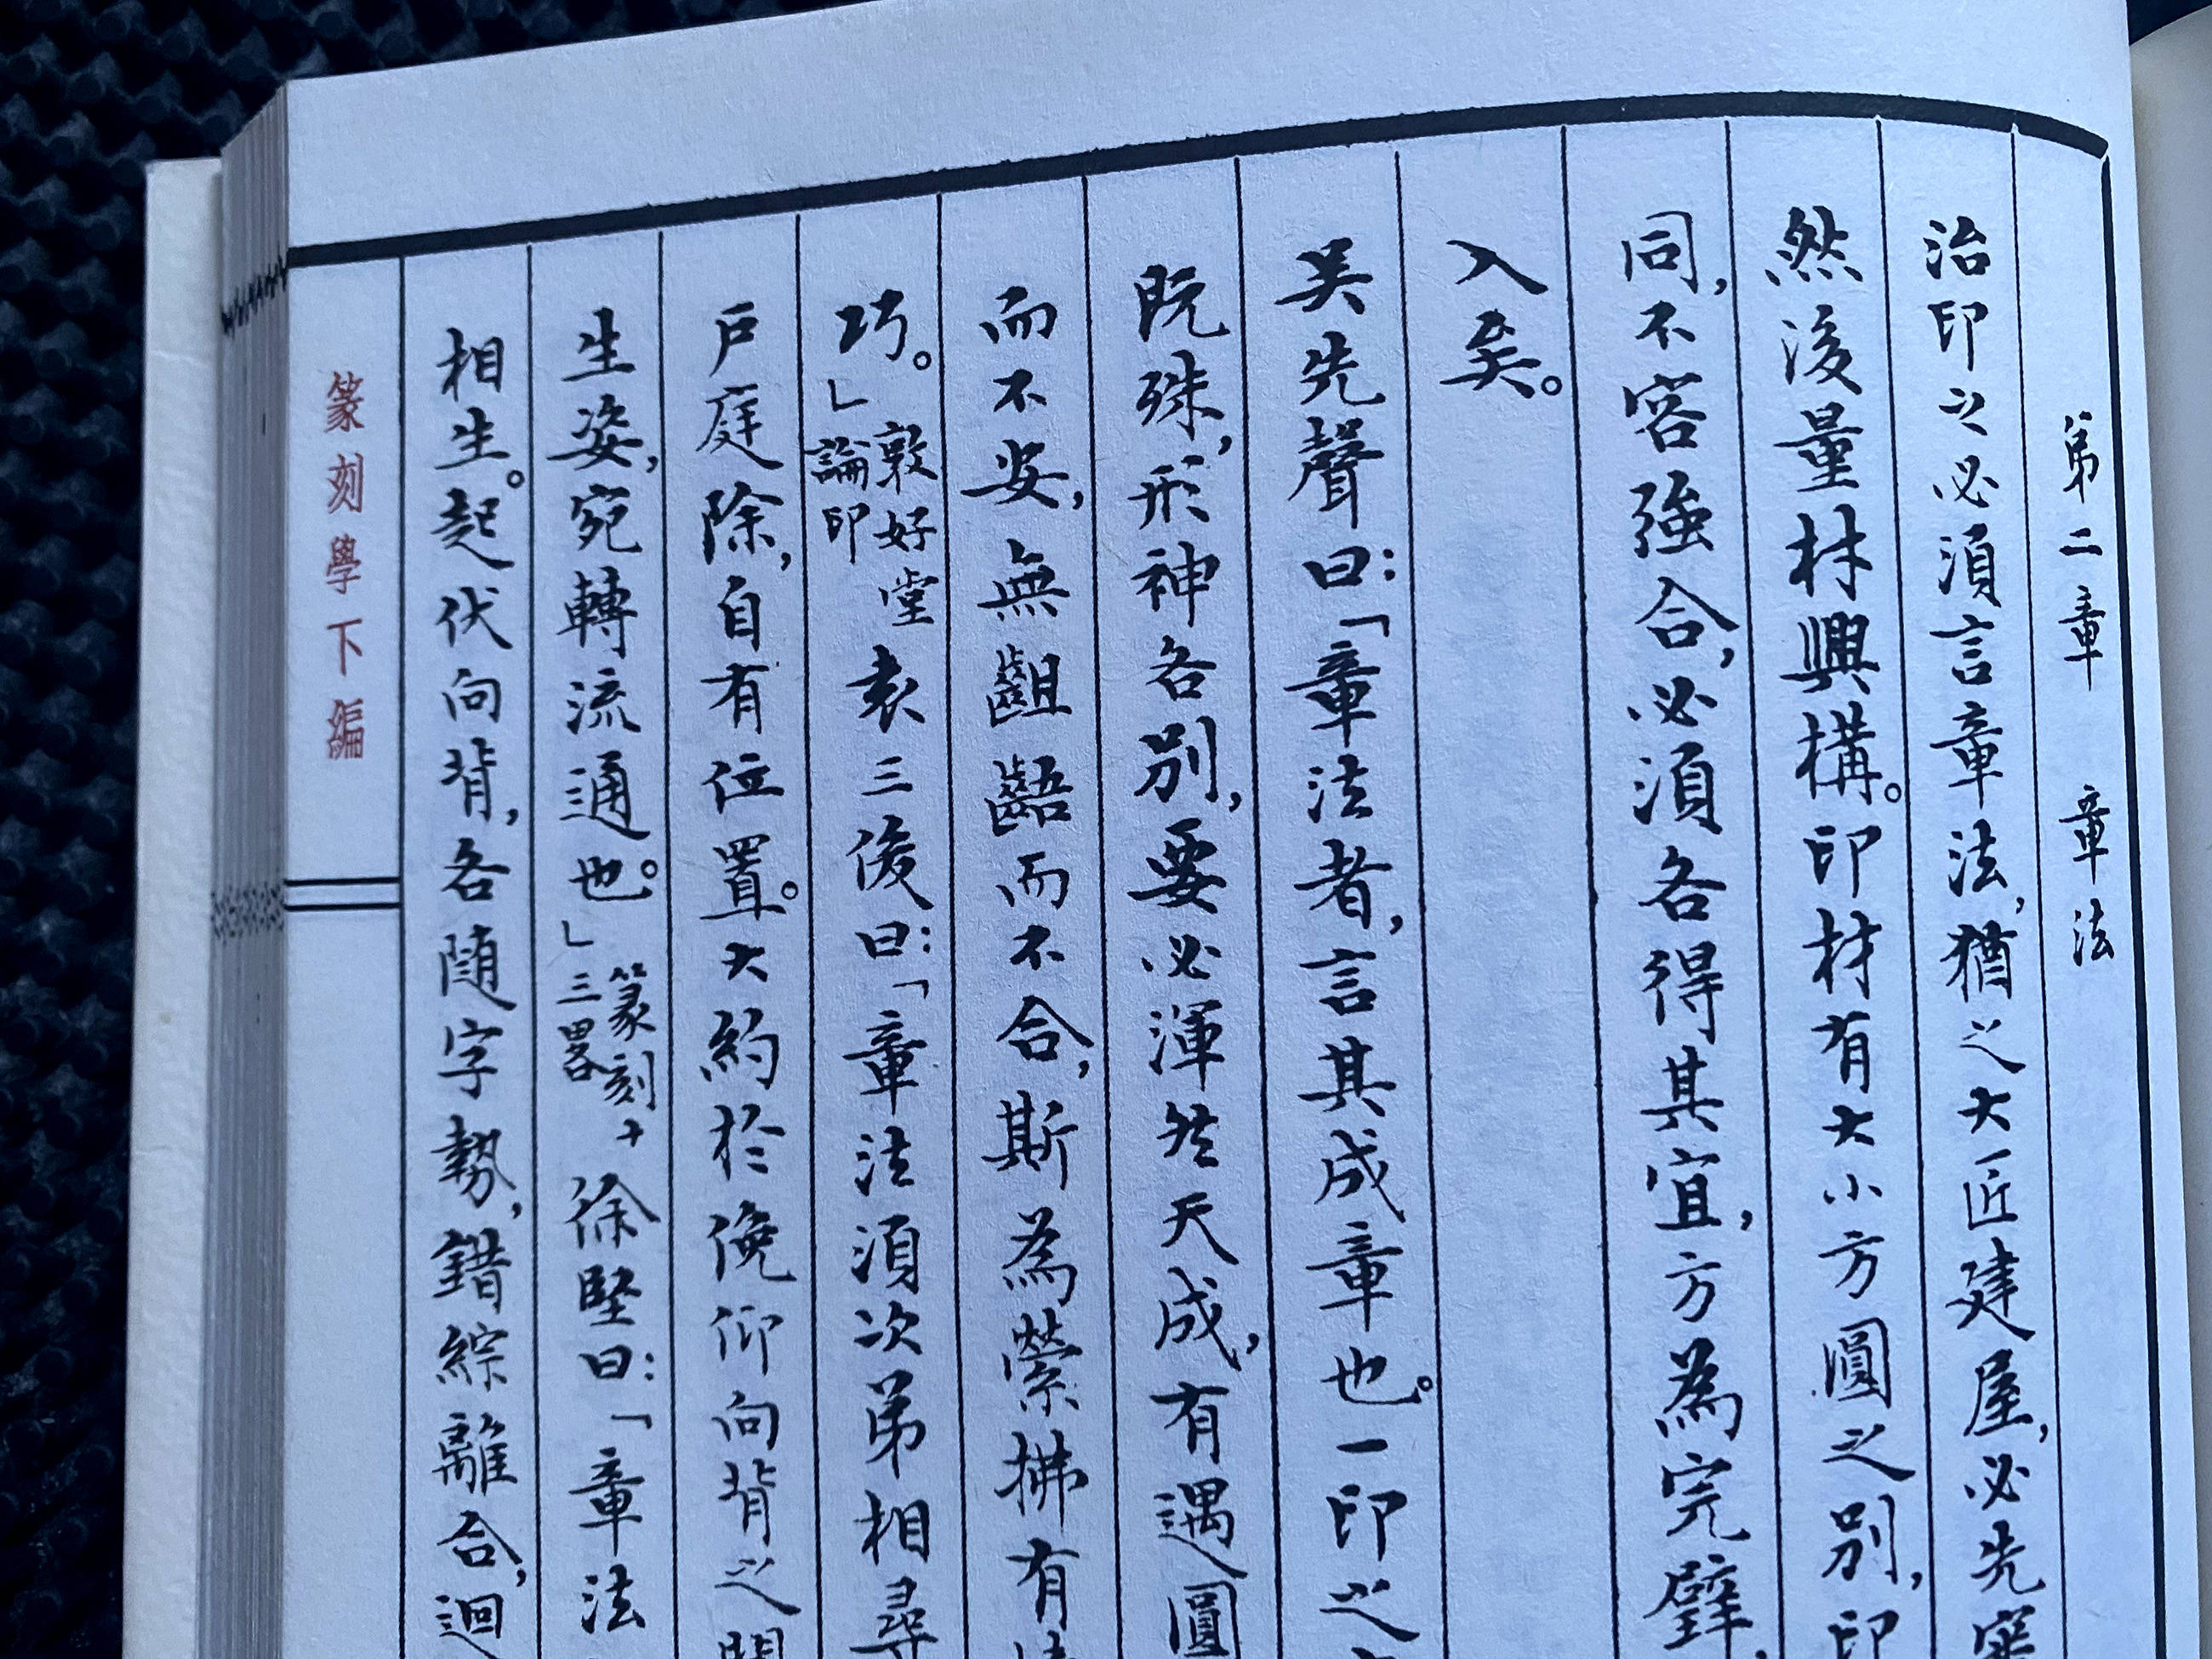 第二章　章法
治印之必須言章法，猶之大匠建屋，必先
然後量材興構。印材有大小方圓之別，印
同，不容強合，必須各得其宜，方為完璧，
入矣。
吴先聲曰：「章法者，言其成章也。一印之
既殊，形神各別，要必渾然天成，有遇圓
而不安，無齟齬而不合，斯為縈拂有
巧。」敦好堂論印袁三俊曰：「章法須次第相尋
戶庭除，自有位置。大約於俛仰向背之間
生姿，宛轉流通也。」篆刻十三畧徐堅曰：「章法
相生。起伏向背，各隨字勢，錯綜離合，迴
篆刻學下編